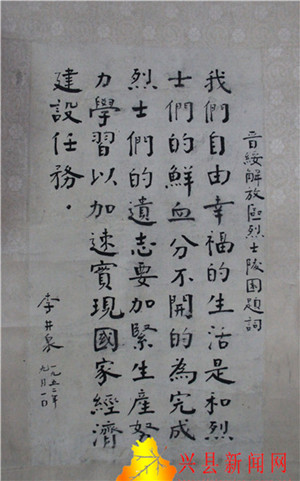 晋綏解放區烈士陵園題詞
我們自由幸福的生活是和烈
士們的鮮血分不開的為完成
烈士們的遺志要加緊生産努
力學習以加速實現國家經濟
建設任務.
李井泉
一九五二年
九月一日
兴县新闻网